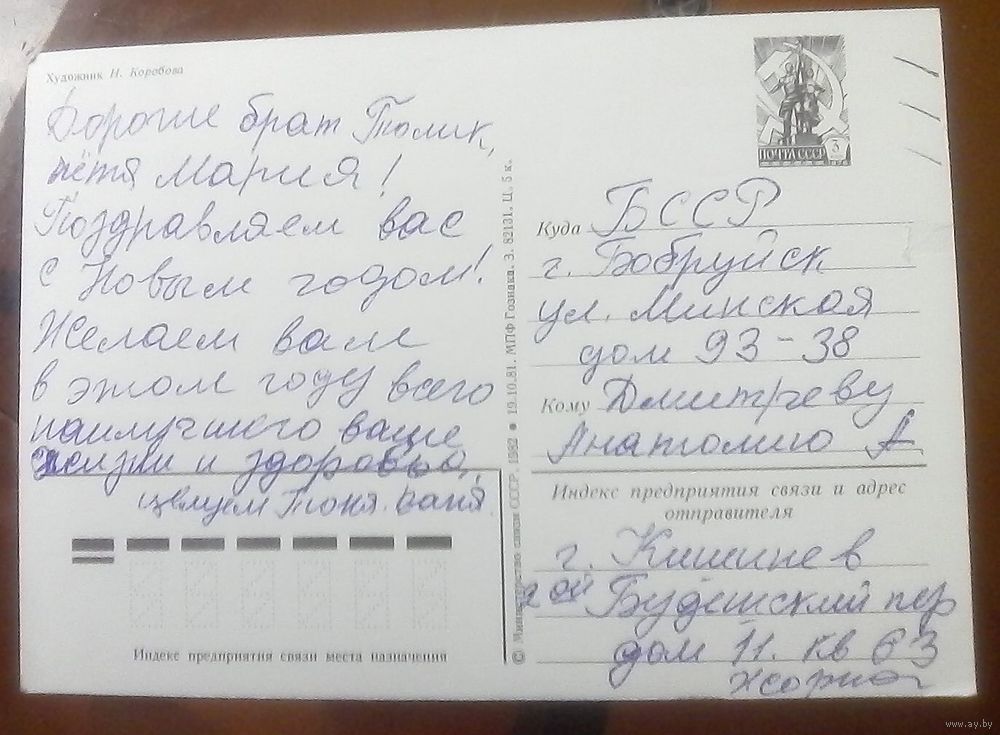 Художник Н. Коробова
Дорогие брат Толик,
тётя Мария!
Поздравляем вас
с Новым годом!
Желаем вам
в этом году всего
наилучшего ваше
жизни и здоровья,
целуем Тоня. Ваня.
Индекс предприятия связи места назначения
© Министерство связи СССР. 1982 ● 19.10.81. МПФ Гознака. З. 82131. Ц. 5 к.
ПОЧТА СССР 3
Куда БССР
г. Бобруйск
ул. Минская
дом 93-38
Кому Дмитреву
Анатолию А
Индекс предприятия связи и адрес
отправителя
г. Кишинев
2ой Будешский пер
дом 11. кв 63
www.ay.by